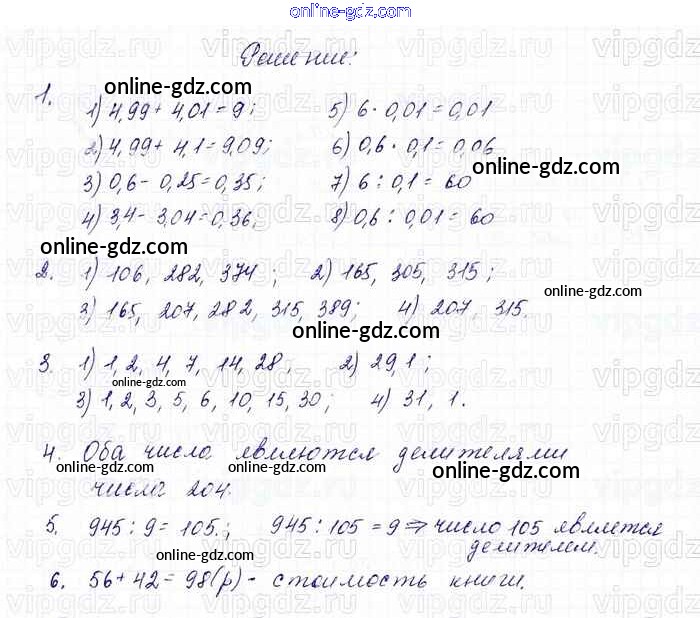 online-gdz.com
Решение:
online-gdz.com
1. 1) 4,99 + 4,01 = 9; 5) 6 · 0,01 = 0,01
2) 4,99 + 4,1 = 9,09; 6) 0,6 · 0,1 = 0,06
online-gdz.com
3) 0,6 - 0,25 = 0,35; 7) 6 : 0,1 = 60
4) 3,4 - 3,04 = 0,36; 8) 0,6 : 0,01 = 60
online-gdz.com
2. 1) 106, 282, 374; 2) 165, 305, 315;
online-gdz.com
3) 165, 207, 282, 315, 389; 4) 207, 315.
online-gdz.com
3. 1) 1, 2, 4, 7, 14, 28; 2) 29, 1;
online-gdz.com
3) 1, 2, 3, 5, 6, 10, 15, 30; 4) 31, 1.
online-gdz.com
4. Оба числа являются делителями
online-gdz.com online-gdz.com online-gdz.com
числа 204.
5. 945 : 9 = 105.; 945 : 105 = 9 => число 105 является
делителем.
online-gdz.com
6. 56 + 42 = 98 (р) - стоимость книги.
online-gdz.com
vipgdz